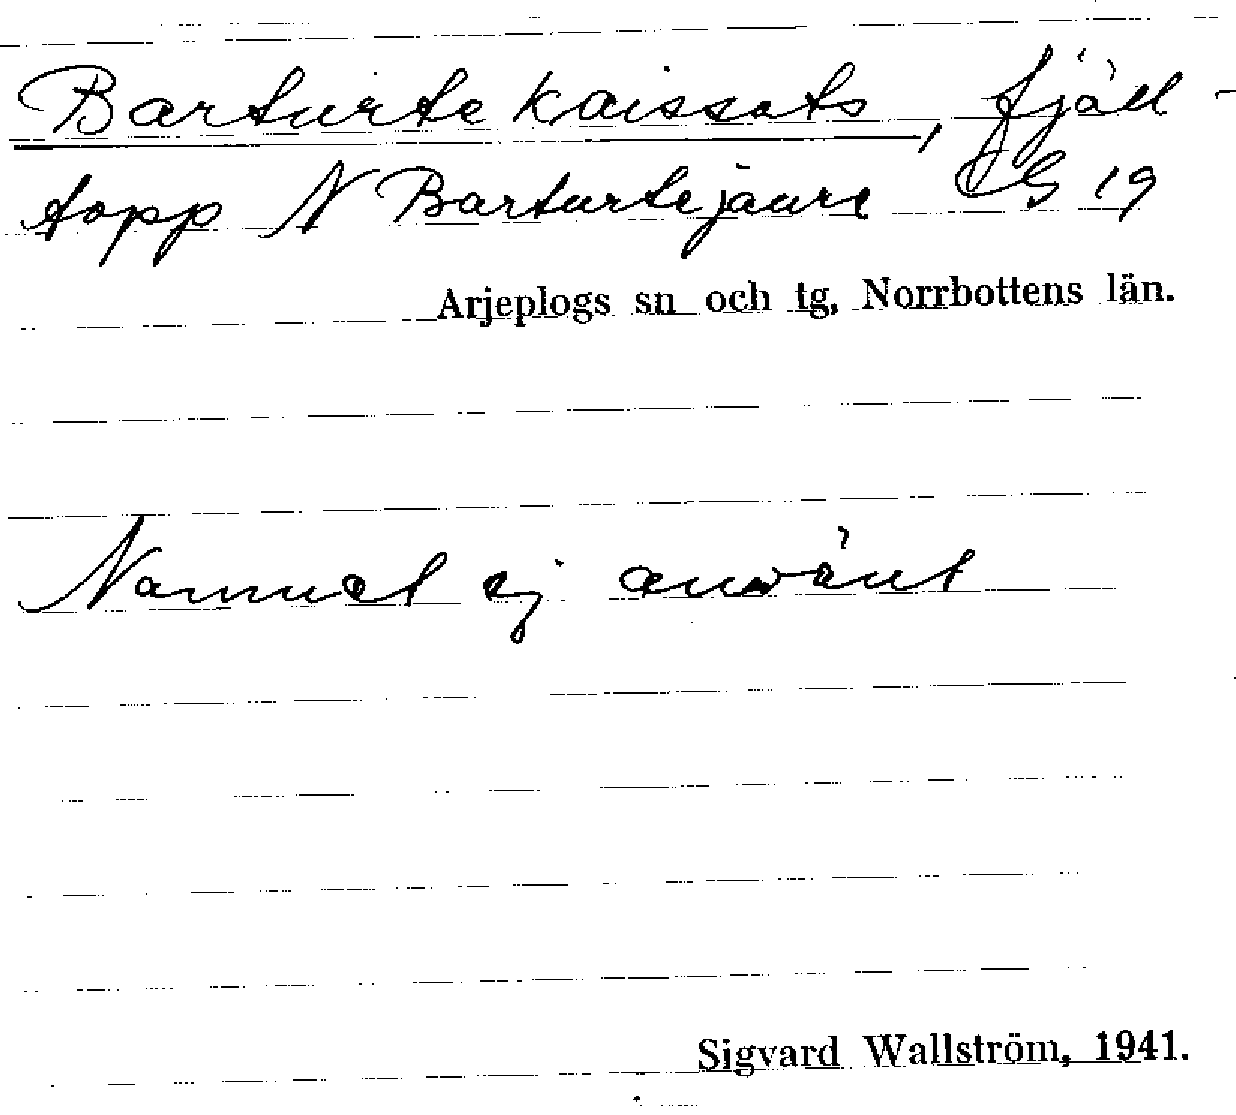 Barturte kaissats, fjäll-
topp N Barturtejaure CG 19
Arjeplogs sn och tg, Norrbottens län.
Namnet ej använt
Sigvard Wallström, 1941.